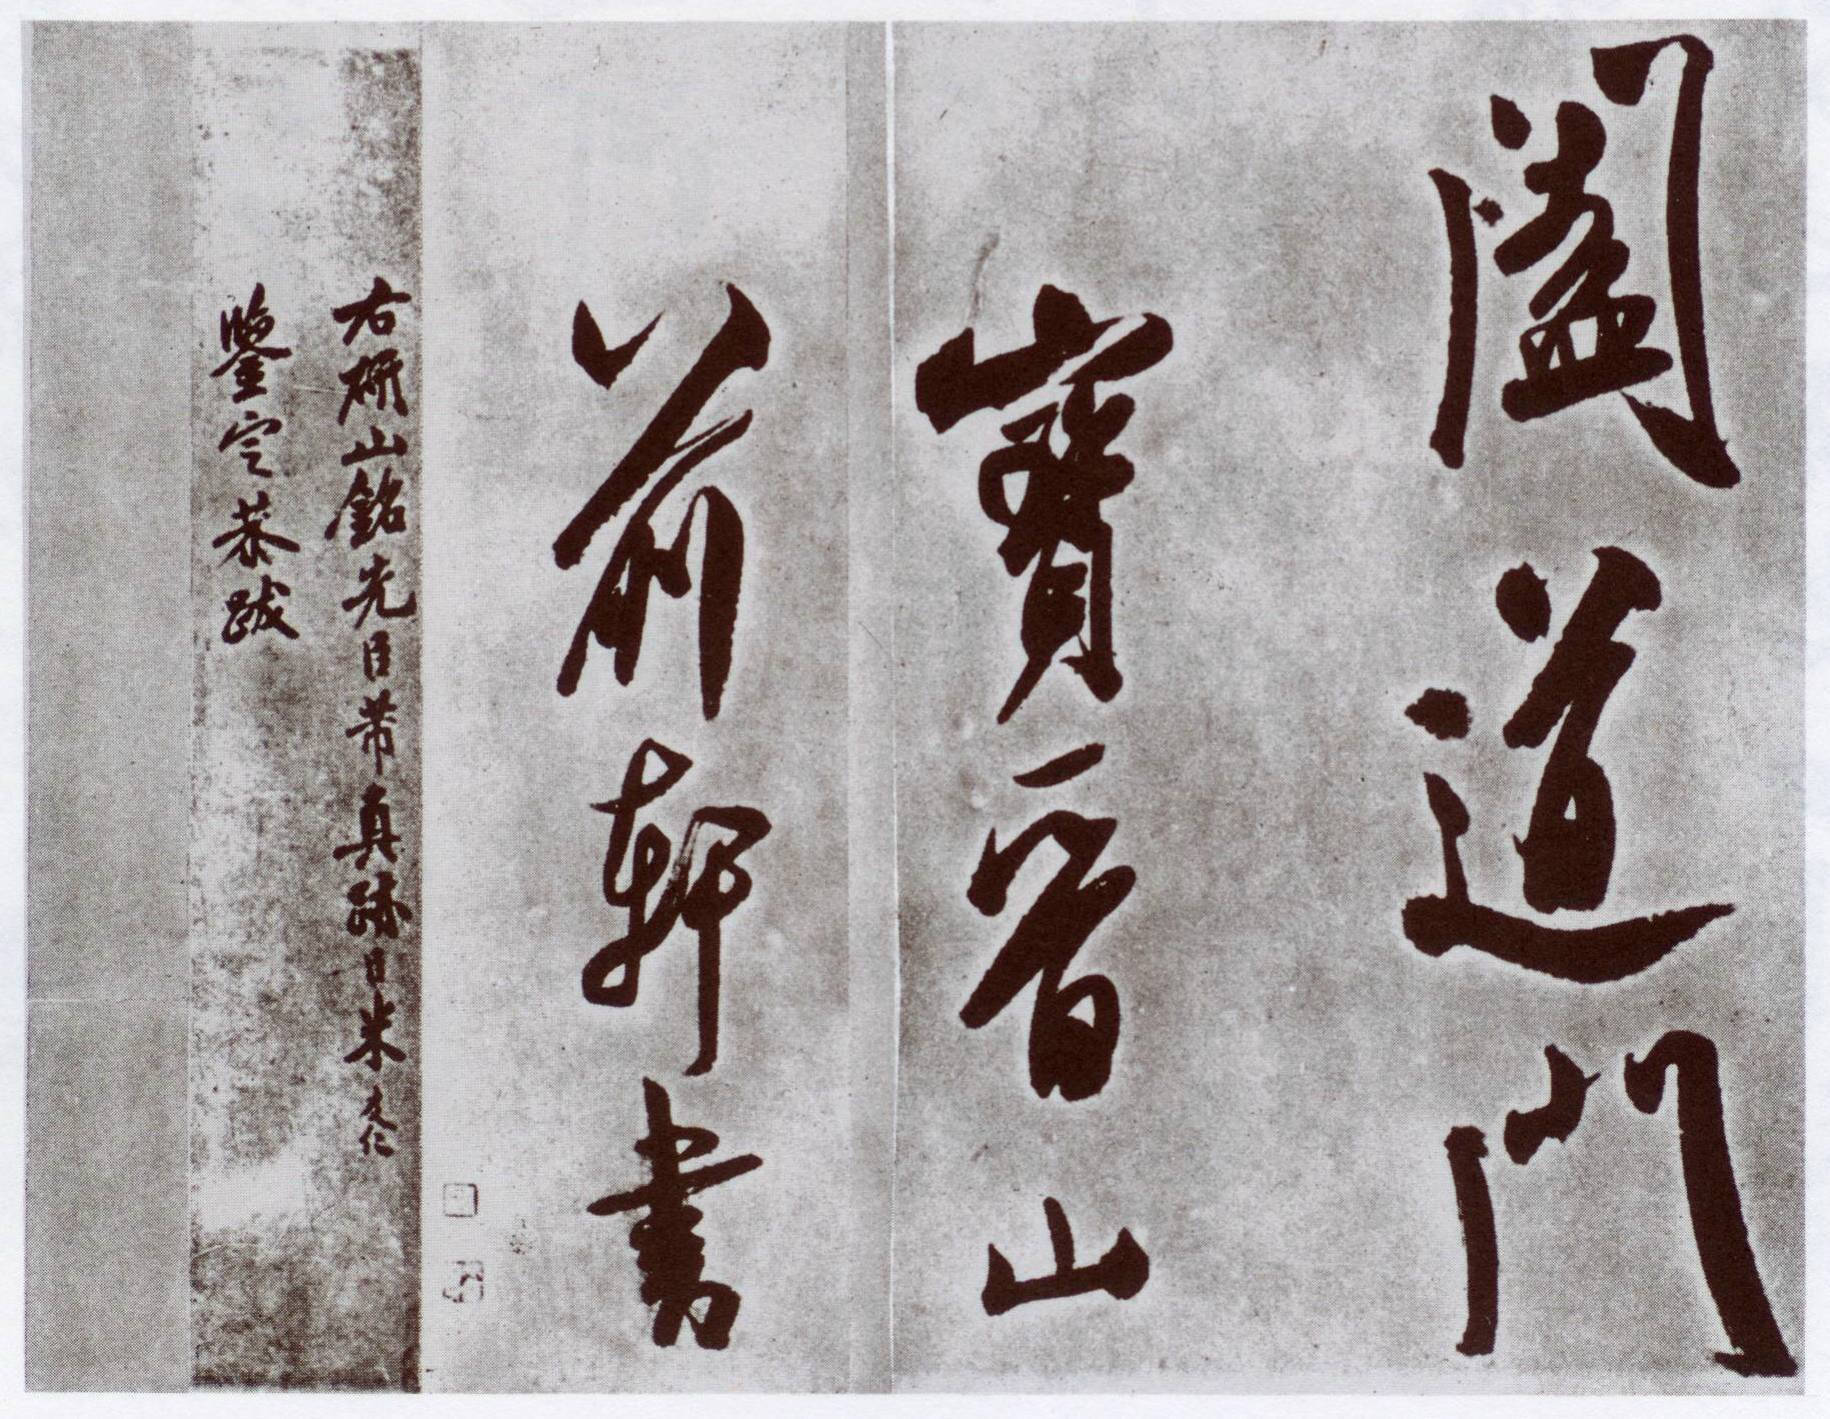 闔道門
寶晉山
前軒書
右研山銘先臣芾真跡臣米友仁
鑒定恭跋